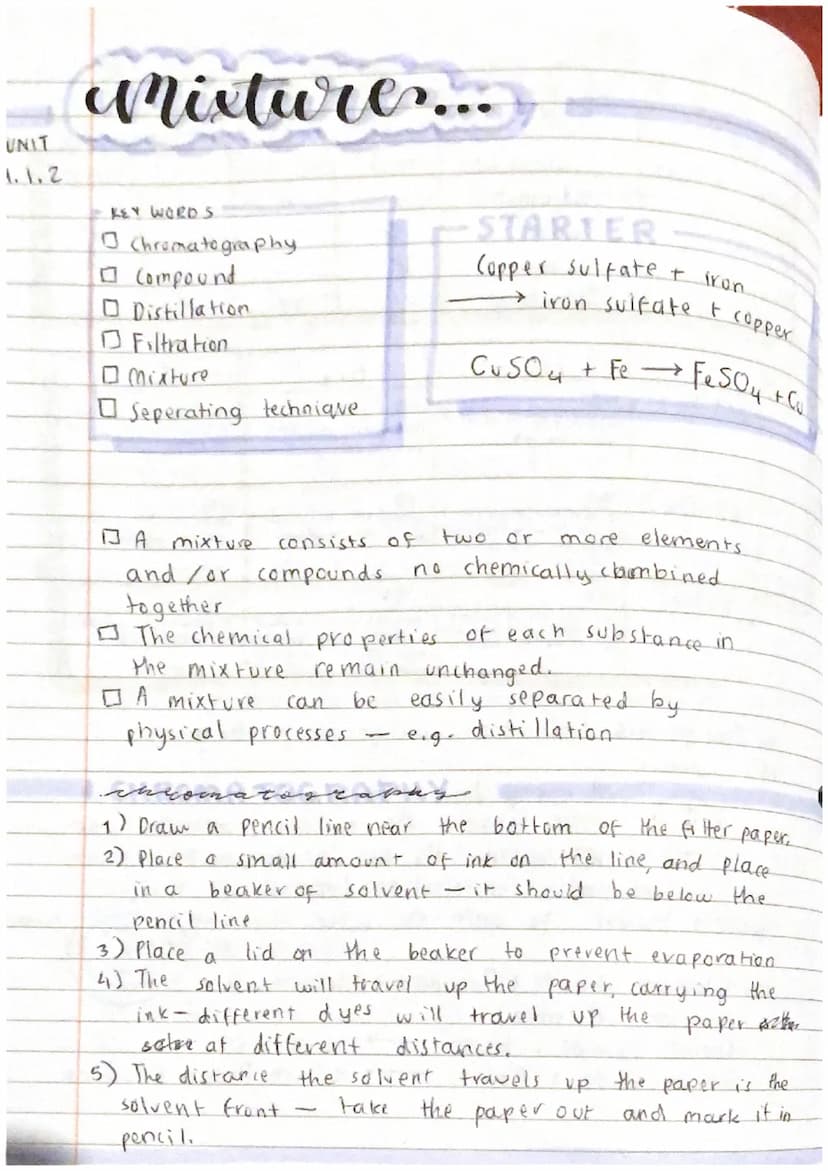 Mixture...
UNIT
1.1.2
KEY WORDS
Chromatography
Compound
Distillation
Filtration
Mixture
Seperating technique
STARTER
Copper sulfate + iron
⟶ iron sulfate + copper
CuSO4 + Fe ⟶ FeSO4 + Cu
A mixture consists of two or more elements
and/or compounds no chemically combined
together
The chemical properties of each substance in
the mixture remain unchanged.
A mixture can be easily separated by
physical processes — e.g. distillation
chromatography
1) Draw a pencil line near the bottom of the filter paper.
2) Place a small amount of ink on the line, and place
in a beaker of solvent — it should be below the
pencil line
3) Place a lid on the beaker to prevent evaporation
4) The solvent will travel up the paper, carrying the
ink - different dyes will travel up the paper
at different distances.
5) The distance the solvent travels up the paper is the
solvent front — take the paper out and mark it in
pencil.